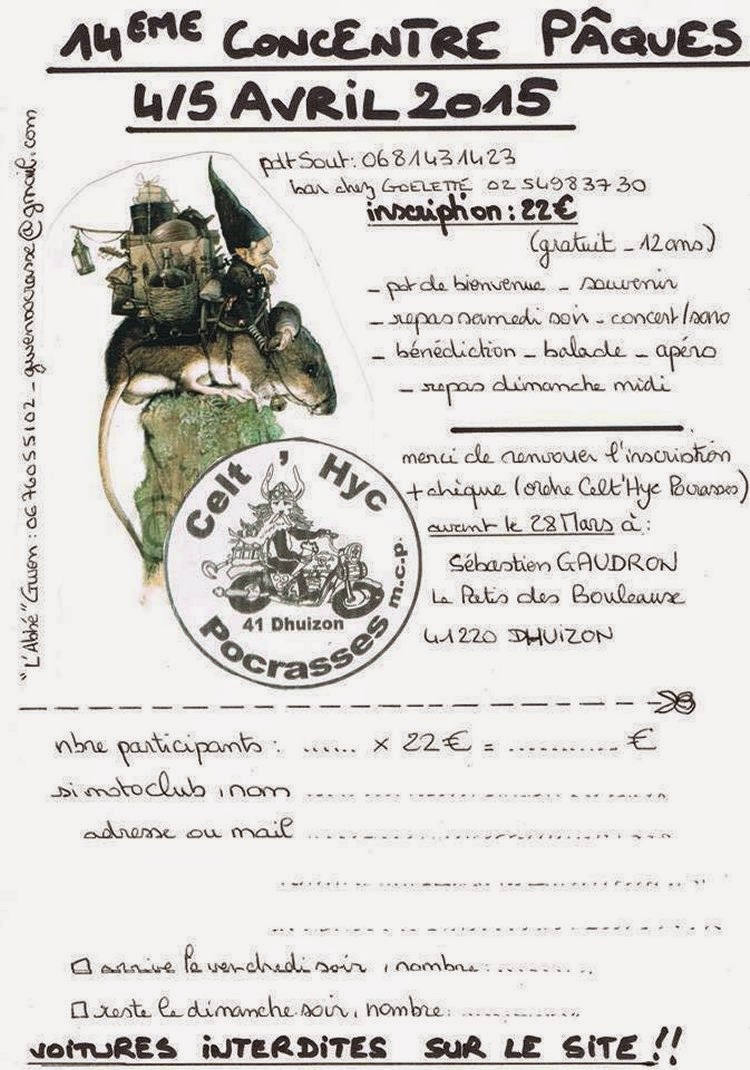 14EME CONCENTRE PÂQUES
4/5 AVRIL 2015
pdt Sout: 0681431423
bar chez GOELETTE 0254983730
inscription: 22€
(gratuit - 12 ans)
- pot de bienvenue - souvenir
- repas samedi soir - concert/sono
- bénédiction - balade - apéro
- repas dimanche midi
merci de renvoyer l'inscription
+ chèque (ordre Celt'Hyc Pocrasses)
avant le 28 Mars à:
Sébastien GAUDRON
Le Patis des Bouleaux
41220 DHUIZON
"L'Abbé" Gwen: 0676055102 - gwenpocrasse@gmail.com
Celt'Hyc
41 Dhuizon
Pocrasses m.c.p.
nbre participants: ...... x 22€ = ........... €
si motoclub, nom ..............................
adresse ou mail ..............................
..............................
..............................
□ arrive le vendredi soir, nombre: ............
□ reste le dimanche soir, nombre: ............
VOITURES INTERDITES SUR LE SITE!!